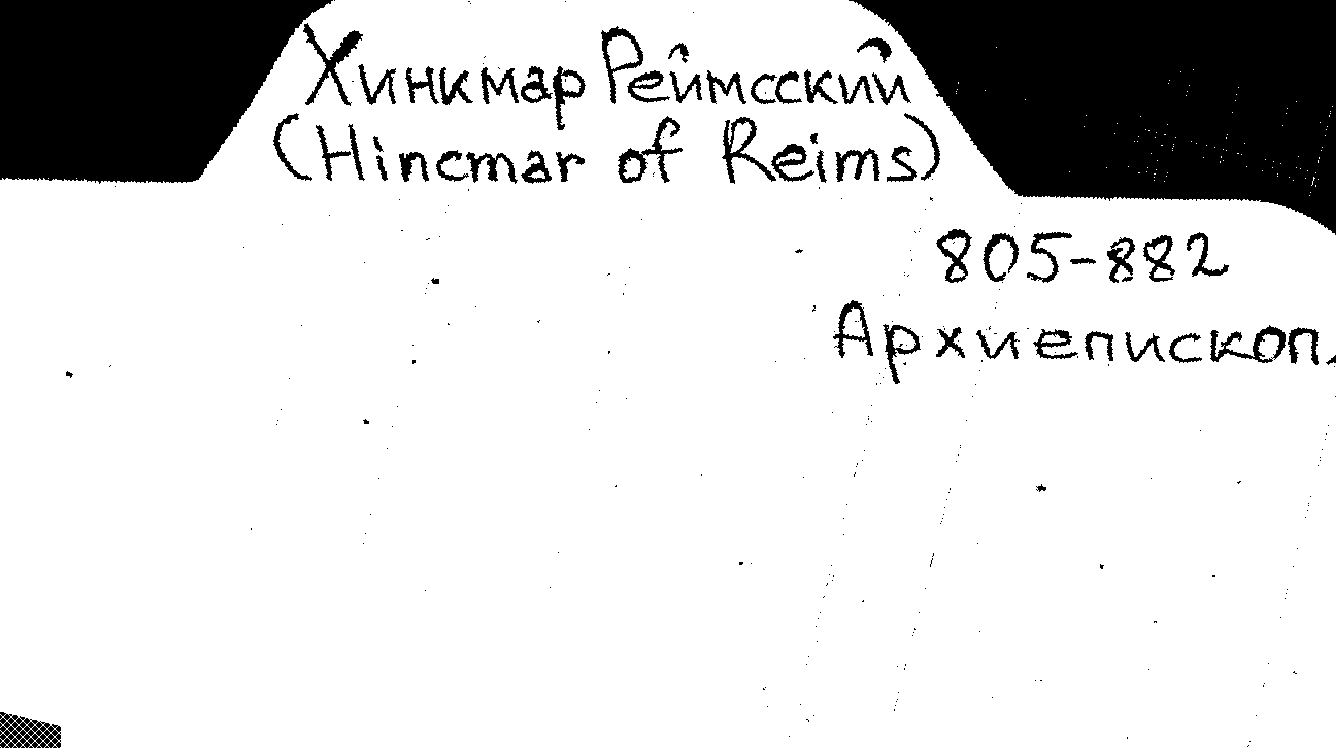 Хинкмар Реймсский
(Hincmar of Reims)
805-882
Архиепископ.